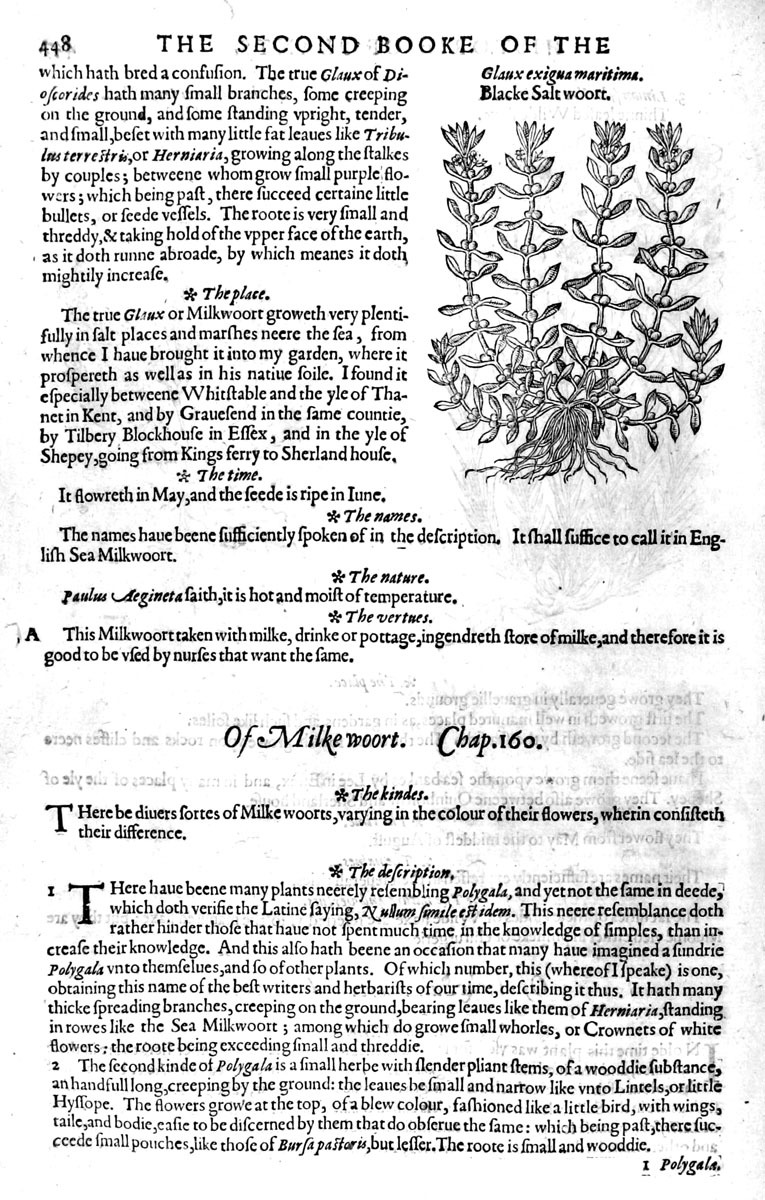 448 THE SECOND BOOKE OF THE
which hath bred a confusion. The true Glaux of Di-
oscorides hath many small branches, some creeping
on the ground, and some standing vpright, tender,
and small, beset with many little fat leaues like Tribu-
lus terrestris, or Herniaria, growing along the stalkes
by couples; betweene whom grow small purple flo-
wers; which being past, there succeed certaine little
bullets, or seede vessels. The roote is very small and
threddy, & taking hold of the vpper face of the earth,
as it doth runne abroade, by which meanes it doth
mightily increase.
❧ The place.
The true Glaux or Milkwoort groweth very plenti-
fully in salt places and marshes neere the sea, from
whence I haue brought it into my garden, where it
prospereth as well as in his natiue soile. I found it
especially betweene Whitstable and the yle of Tha-
net in Kent, and by Grauesend in the same countie,
by Tilbery Blockhouse in Essex, and in the yle of
Shepey, going from Kings ferry to Sherland house.
❧ The time.
It flowreth in May, and the seede is ripe in Iune.
Glaux exigua maritima.
Blacke Salt woort.
❧ The names.
The names haue beene sufficiently spoken of in the description. It shall suffice to call it in Eng-
lish Sea Milkwoort.
❧ The nature.
Paulus Aegineta saith, it is hot and moist of temperature.
❧ The vertues.
A This Milkwoort taken with milke, drinke or pottage, ingendreth store of milke, and therefore it is
good to be vsed by nurses that want the same.
Of Milke woort. Chap. 160.
❧ The kindes.
THere be diuers sortes of Milke woorts, varying in the colour of their flowers, wherin consisteth
their difference.
❧ The description.
1 THere haue beene many plants neerely resembling Polygala, and yet not the same in deede,
which doth verifie the Latine saying, Nullum simile est idem. This neere resemblance doth
rather hinder those that haue not spent much time in the knowledge of simples, than in-
crease their knowledge. And this also hath beene an occasion that many haue imagined a sundrie
Polygala vnto themselues, and so of other plants. Of which number, this (whereof I speake) is one,
obtaining this name of the best writers and herbarists of our time, describing it thus. It hath many
thicke spreading branches, creeping on the ground, bearing leaues like them of Herniaria, standing
in rowes like the Sea Milkwoort; among which do growe small whorles, or Crownets of white
flowers: the roote being exceeding small and threddie.
2 The second kinde of Polygala is a small herbe with slender pliant stems, of a wooddie substance,
an handfull long, creeping by the ground: the leaues be small and narrow like vnto Lintels, or little
Hyssope. The flowers growe at the top, of a blew colour, fashioned like a little bird, with wings,
taile, and bodie, easie to be discerned by them that do obserue the same: which being past, there suc-
ceede small pouches, like those of Bursa pastoris, but lesser. The roote is small and wooddie.
1 Polygala.